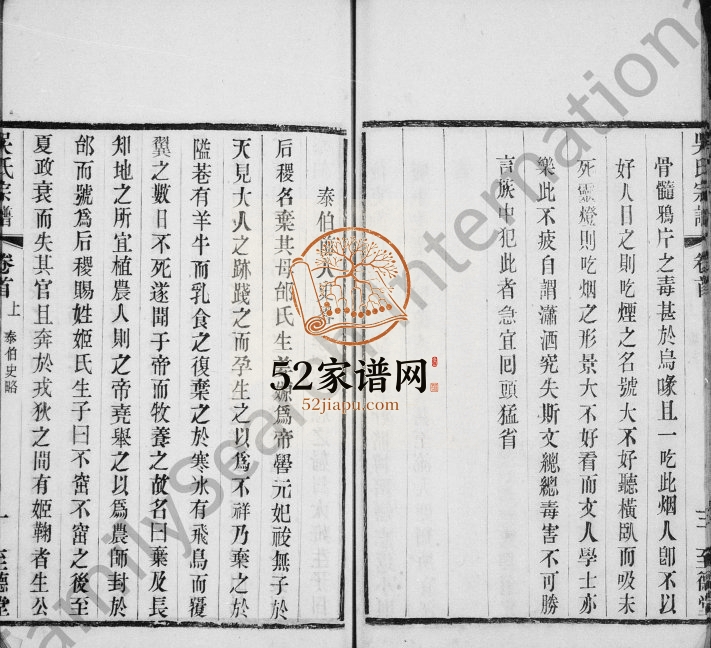 吳氏宗譜 卷首
三 至德堂
骨髓鴉片之毒甚於烏喙且一吃此烟人卽不以
好人目之則吃煙之名號大不好聽橫臥而吸未
死靈燈則吃烟之形景大不好看而文人學士亦
樂此不疲自謂瀟洒究失斯文總總毒害不可勝
言族中犯此者急宜囘頭猛省
泰伯 人史
后稷名棄其母邰氏生 嫄爲帝嚳元妃祓無子於
天見大人之跡踐之而孕生之以爲不祥乃棄之於
隘巷有羊牛而乳食之復棄之於寒氷有飛鳥而覆
翼之數日不死遂聞于帝而牧養之故名曰棄及長
知地之所宜植農人則之帝堯舉之以爲農師封於
邰而號爲后稷賜姓姬氏生子曰不窋不窋之後至
夏政衰而失其官且奔於戎狄之間有姬鞠者生公
吳氏宗譜 卷首 上 泰伯史略 一 至德堂
52家谱网
52jiapu.com
FamilySearch International